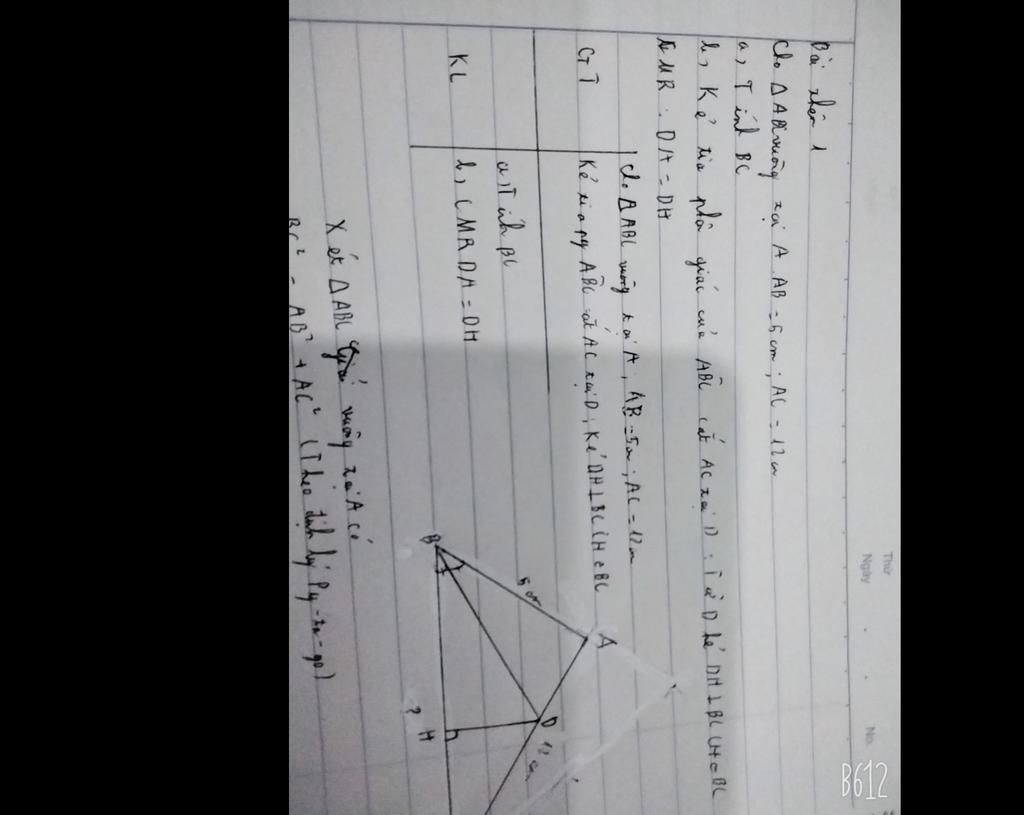 Bài thêm 1
Cho ΔABC vuông tại A. AB = 5 cm; AC = 12 cm
a, Tính BC
b, Kẻ tia phân giác của ABC cắt AC tại D. Từ D kẻ DH⊥BC (H∈BC
CMR: DA = DH
GT
Cho ΔABC vuông tại A; AB = 5cm; AC = 12 cm
Kẻ tia pg ABC cắt AC tại D; Kẻ DH⊥BC (H∈BC
KL
a, Tính BC
b, CMR DA = DH
B
A
D
H
5 cm
12 cm
?
Xét ΔABC vuông tại A có
BC² = AB² + AC² (Theo định lý Py-ta-go)
Thứ
Ngày
No.
B612